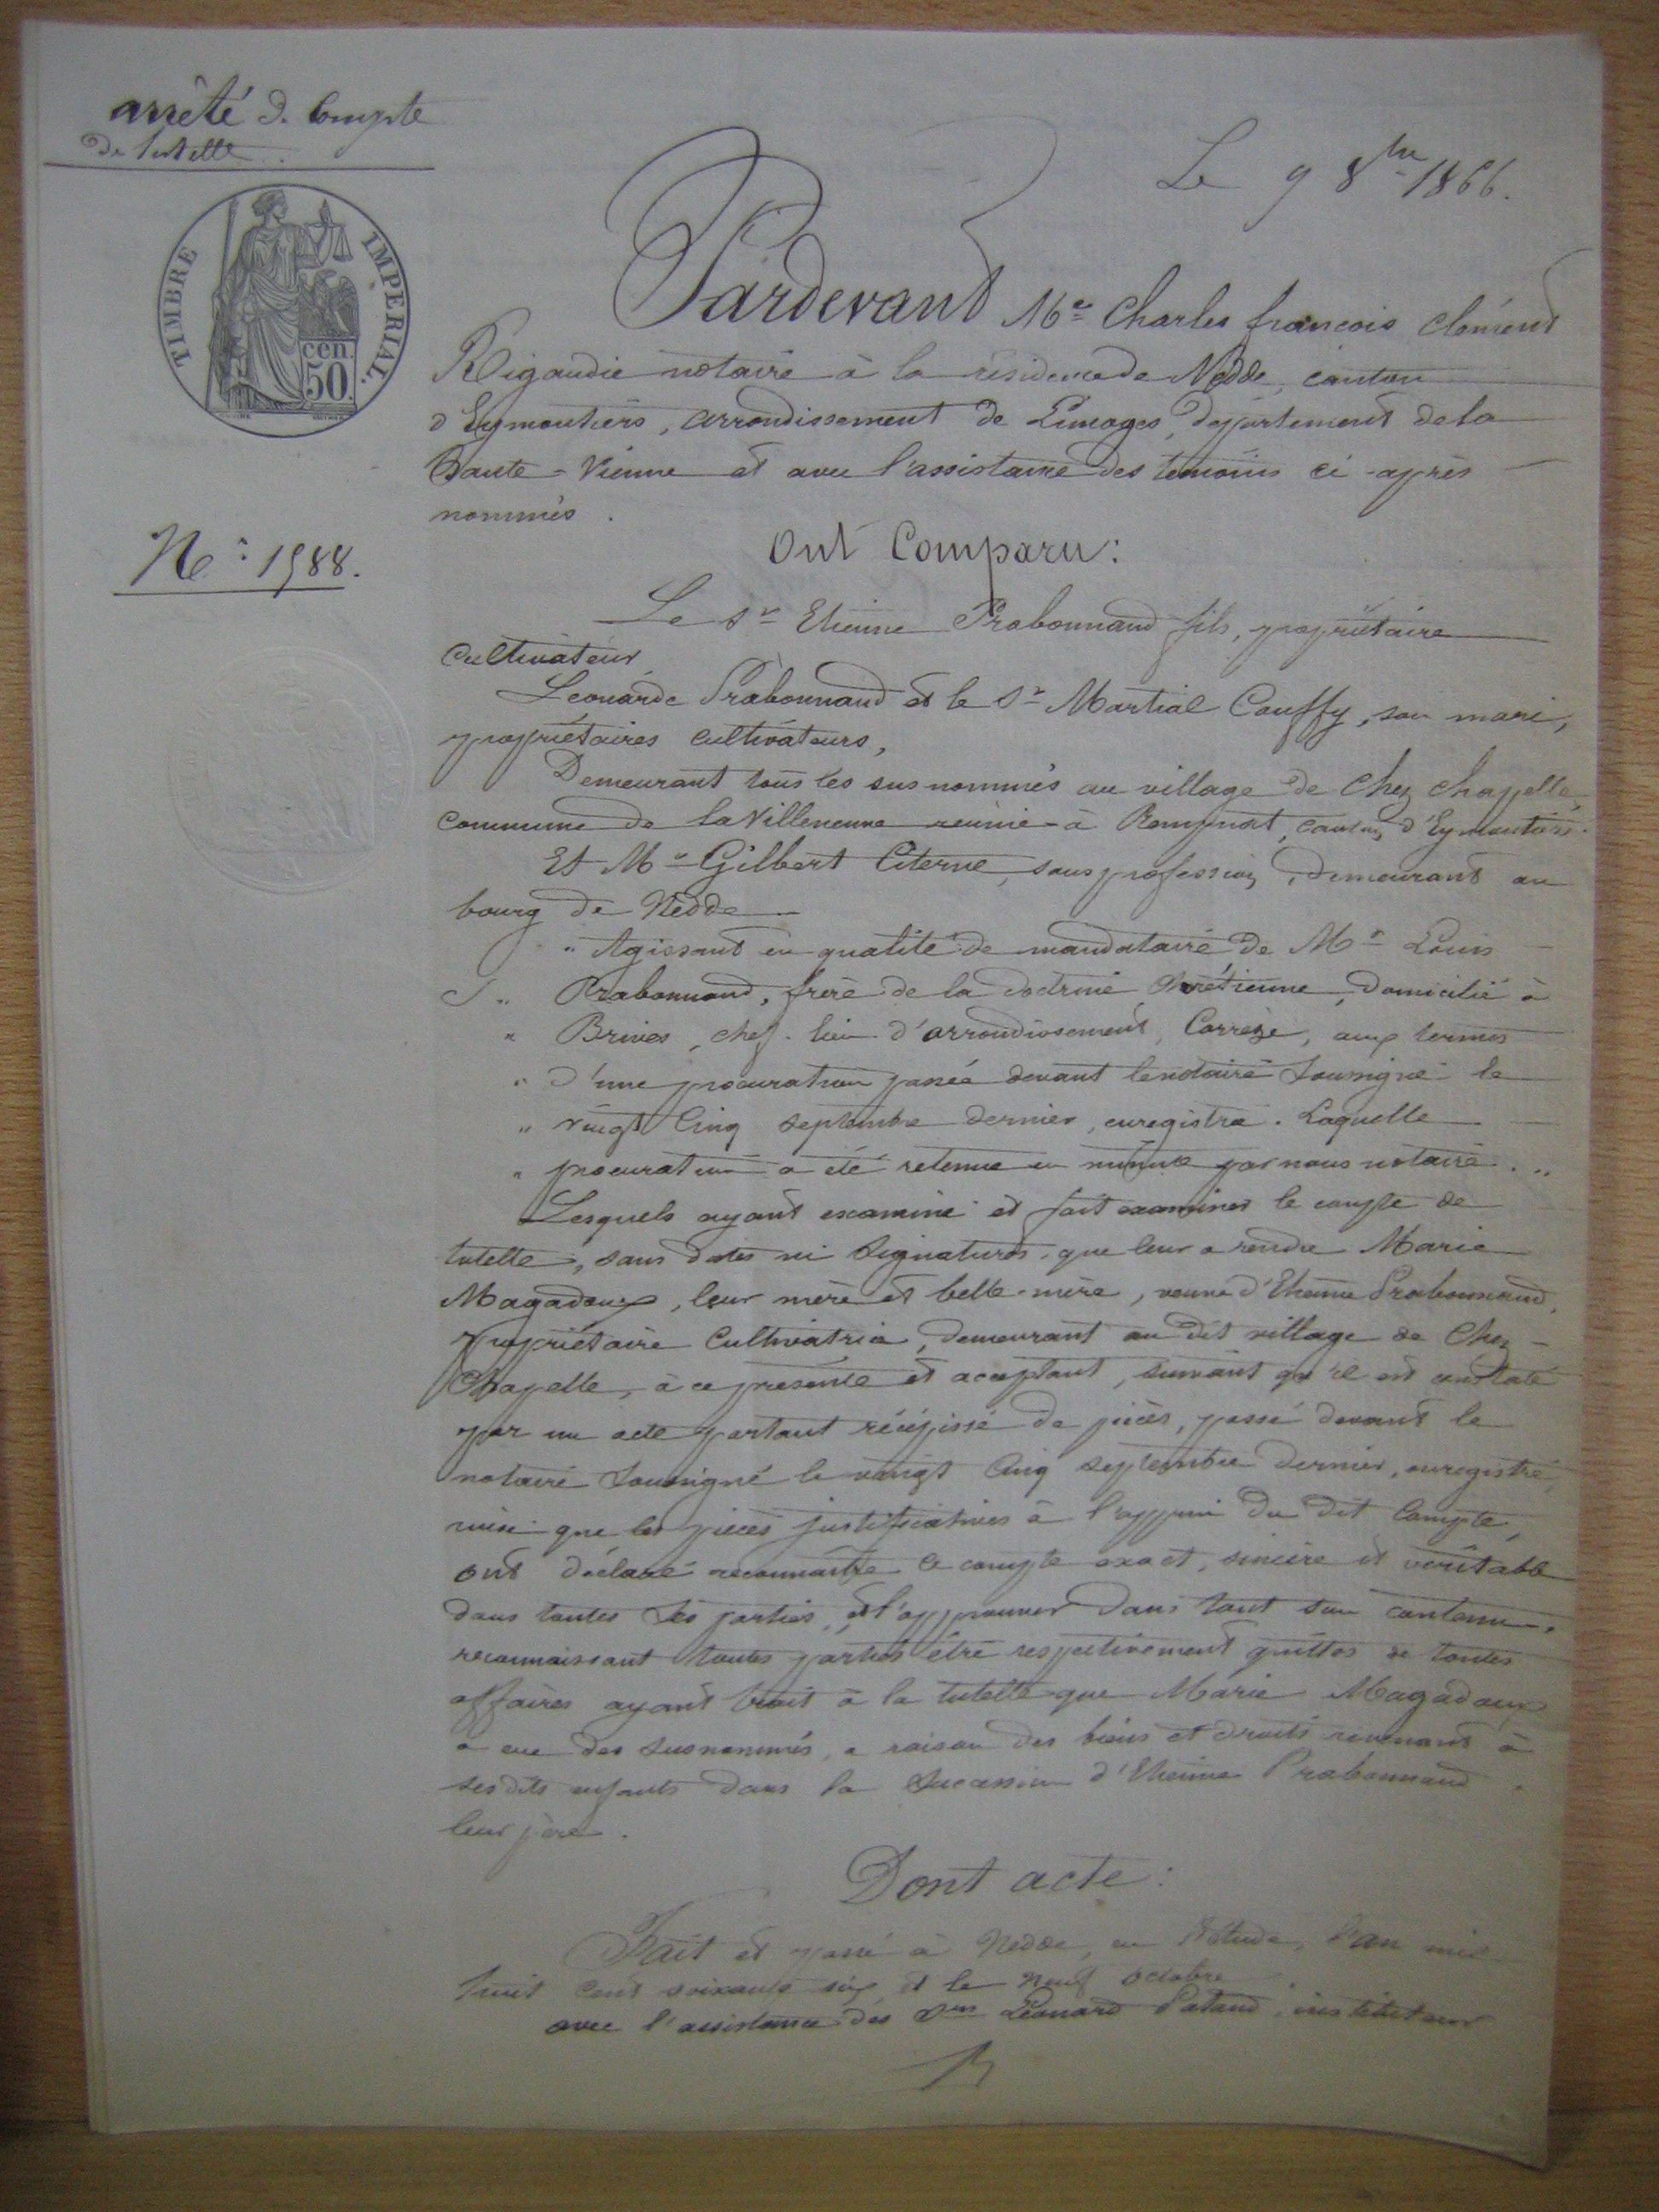 arrêté de Compte
de tutelle.
Le 9 8bre 1866.
TIMBRE IMPERIAL.
50 cen.
N.º: 1588.
Pardevant Me Charles françois Clément
Rigaudie notaire à la résidence de Nedde, canton
d'Eymoutiers, arrondissement de Limoges, département de la
Haute-Vienne et avec l'assistance des témoins ci après
nommés.
Ont Comparu:
Le sr Etienne Prabonnaud fils, propriétaire
cultivateur
Léonarde Prabonnaud et le sr Martial Cauffy, son mari,
propriétaires cultivateurs,
Demeurant tous les sus nommés au village de Chez Chapelle
commune de la Villeneuve réunie à Bonnefont, canton d'Eymoutiers.
Et Mr Gilbert Citerne, sans profession, demeurant au
bourg de Nedde
" Agissant en qualité de mandataire de Mr Louis
" Prabonnaud, frère de la doctrine chrétienne, domicilié à
" Brives, chef-lieu d'arrondissement, Corrèze, aux termes
" d'une procuration passée devant le notaire soussigné le
" vingt cinq septembre dernier, enregistré. Laquelle
" procuration a été retenue en minute par nous notaire."
Lesquels ayant examiné et fait examiner le compte de
tutelle, sans date ni signature, que leur a rendu Marie
Magadoux, leur mère et belle-mère, veuve d'Etienne Prabonnaud,
propriétaire cultivatrice, demeurant au dit village de Chez-
Chapelle, à ce présente et acceptant, suivant qu'il est constaté
par un acte portant récépissé de pièces, passé devant le
notaire soussigné le vingt cinq septembre dernier, enregistré,
ainsi que les pièces justificatives à l'appui du dit compte,
ont déclaré reconnaître ce compte exact, sincère et véritable
dans toutes ses parties, et l'approuver dans tout son contenu,
reconnaissant toutes parties être respectivement quittes de toutes
affaires ayant trait à la tutelle que Marie Magadoux
a eue des susnommés, à raison des biens et droits revenant à
ses dits enfants dans la succession d'Etienne Prabonnaud
leur père.
Dont acte:
Fait et passé à Nedde, en l'étude, l'an mil
huit cent soixante six, et le neuf octobre
avec l'assistance des srs Léonard Pataud, instituteur